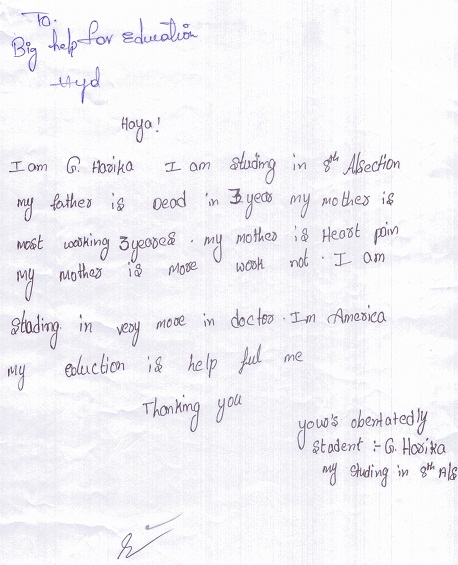 To.
Big help for education
Hyd
Haya!
I am G. Harika I am studing in 8th A/section
my father is Dead in 3 year my mother is
most working 3 yeares. my mother is Heart pain
my mother is more work not. I am
Stading in very more in doctor. I'm America
my eduction is help ful me
Thanking you
your's obentatedly
Student :- G. Harika
my studing in 8th A/S